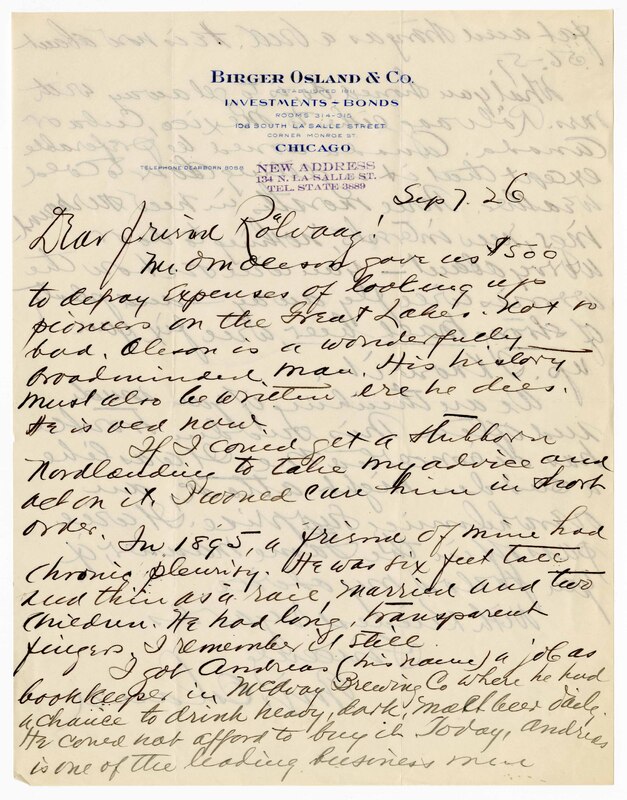 BIRGER OSLAND & CO.
ESTABLISHED 1911
INVESTMENTS - BONDS
ROOMS 314-315
108 SOUTH LA SALLE STREET
CORNER MONROE ST.
CHICAGO
TELEPHONE DEARBORN 8088
NEW ADDRESS
134 N. LA SALLE ST.
TEL. STATE 3889
Sep 7. 26
Dear friend Rölvaag!
Mr. O M Oleson gave us $500
to defray expenses of looking up
pioneers on the Great Lakes. Not so
bad. Oleson is a wonderfully
broadminded man. His history
must also be written ere he dies.
He is old now.
If I could get a stubborn
Nordlanding to take my advice and
act on it I would cure him in short
order.
In 1895, a friend of mine had
chronic pleurisy. He was six feet tall
and thin as a rail, married and two
children. He had long, transparent
fingers, I remember it still.
I got Andreas (his name) a job as
bookkeeper in McAvoy Brewing Co where he had
a chance to drink heavy, dark, malt beer daily.
He could not afford to buy it. Today, Andreas
is one of the leading business men